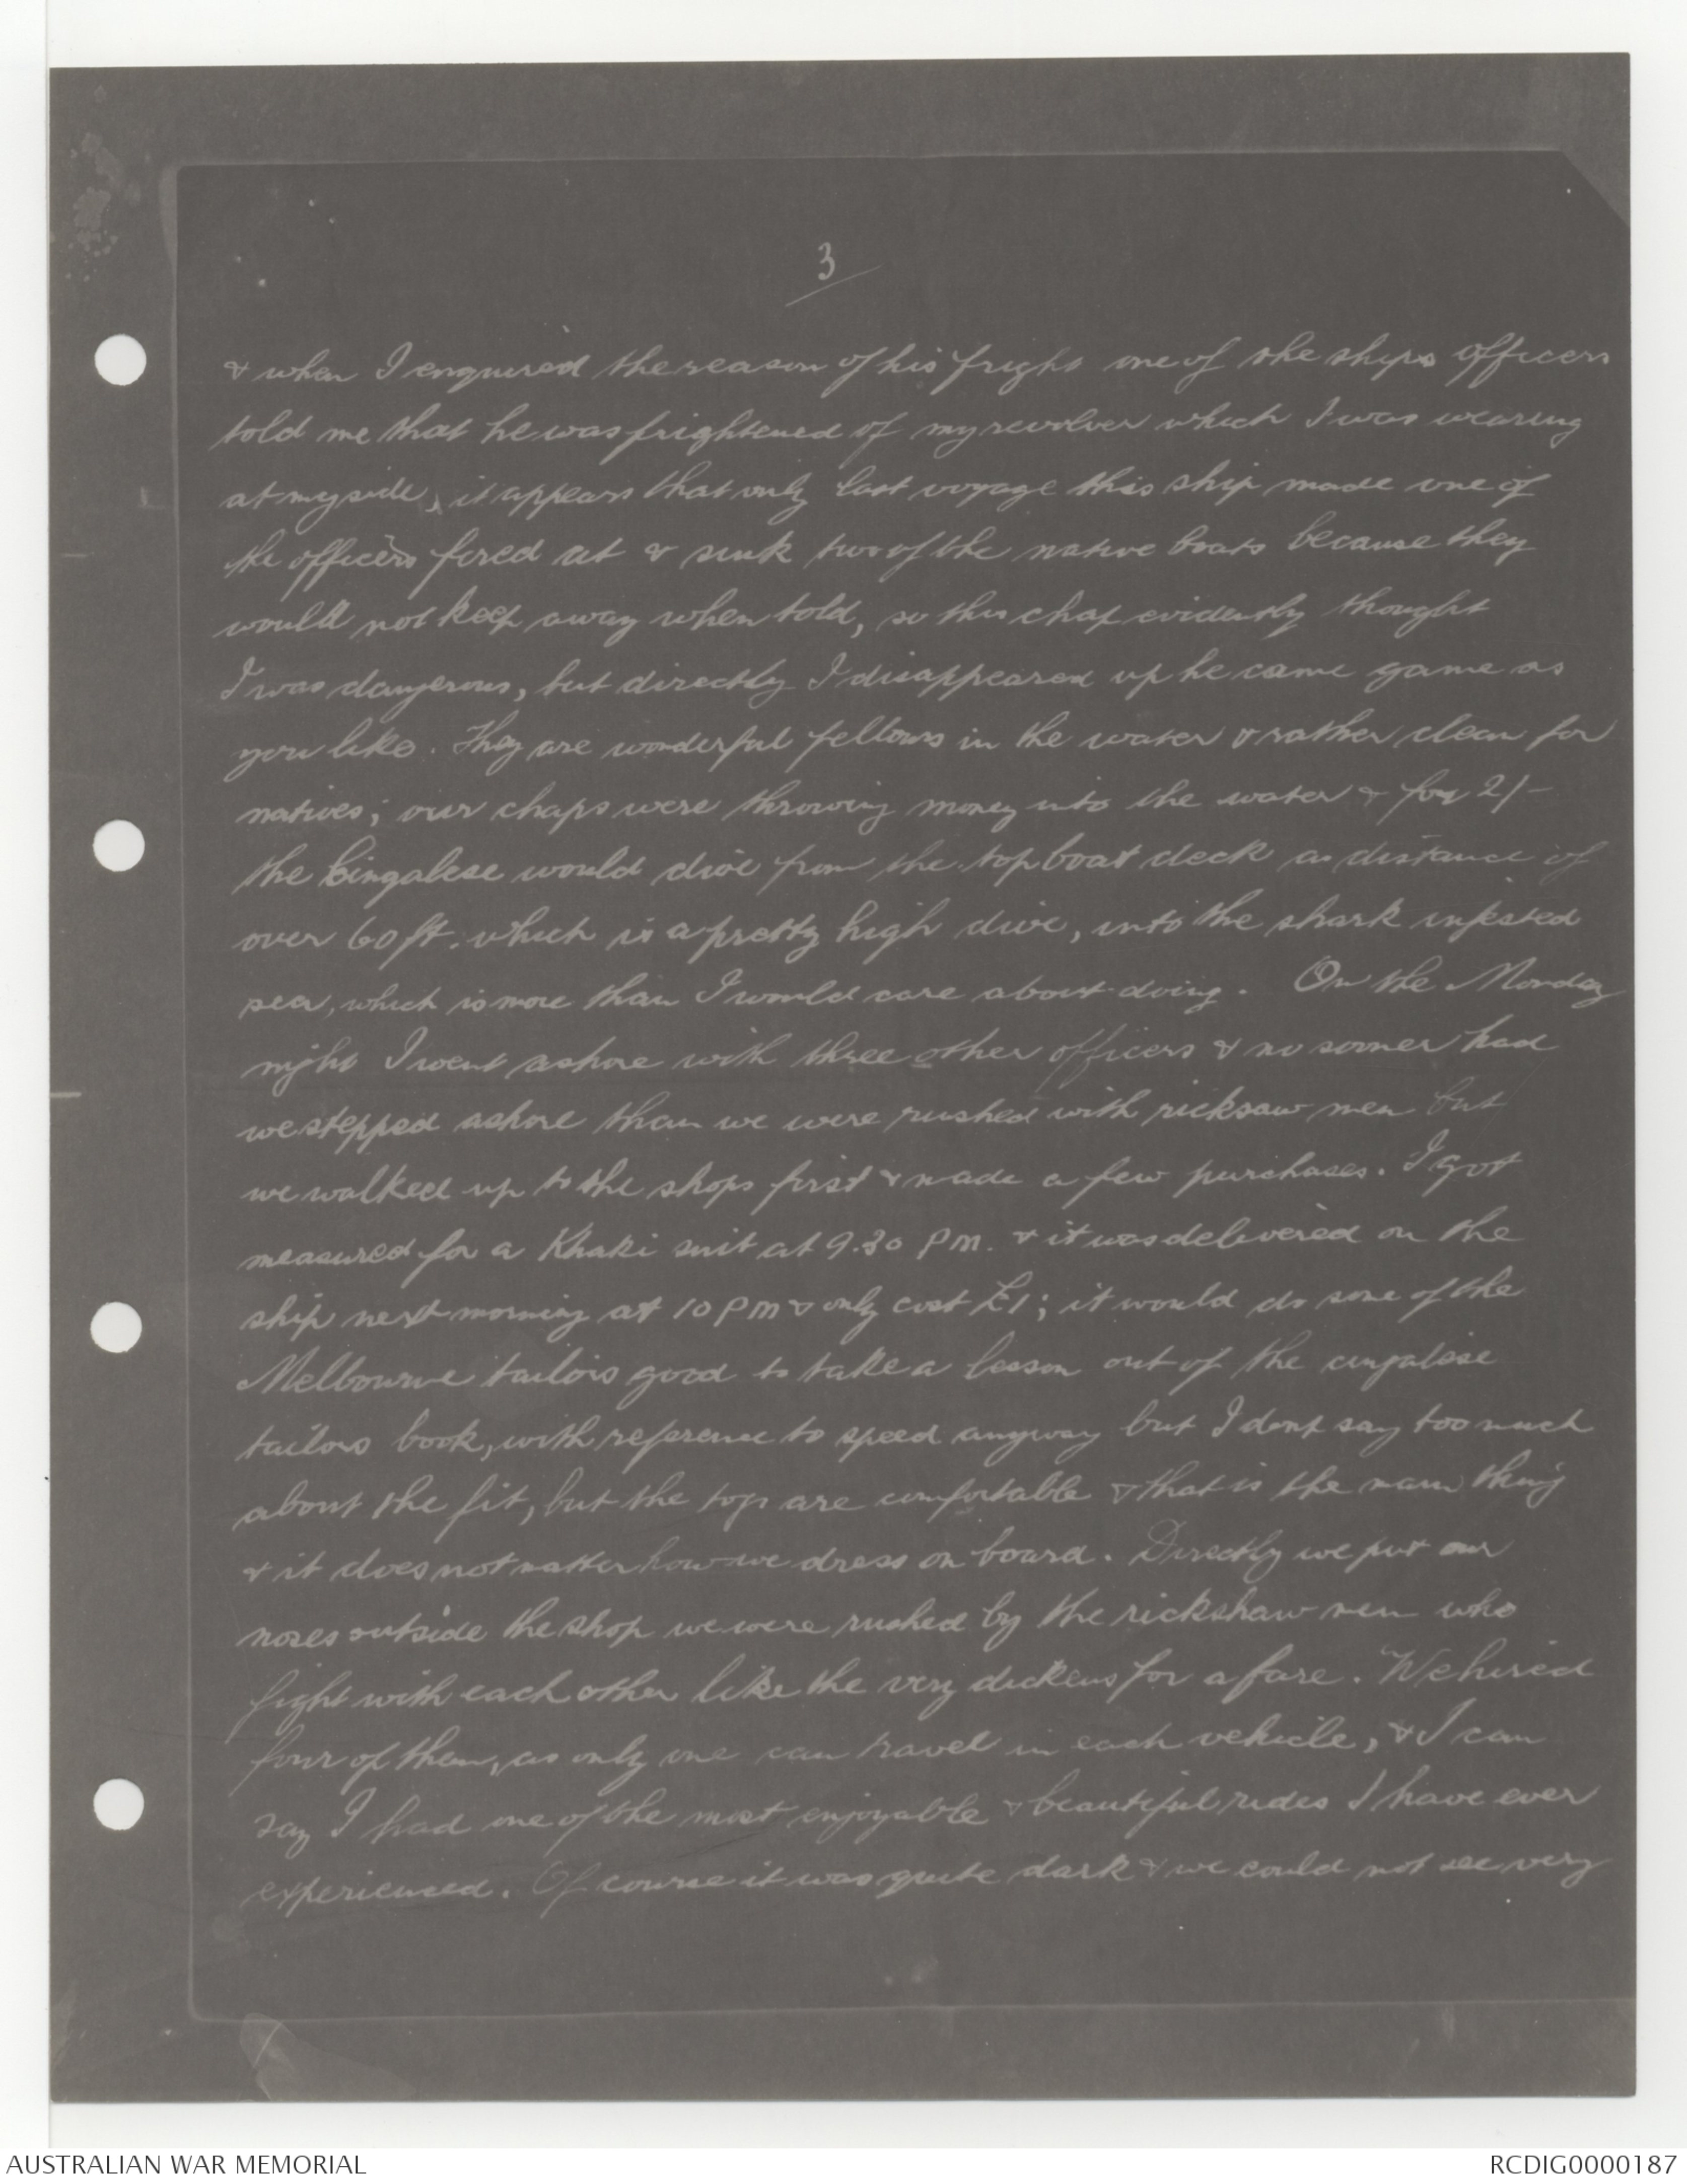 3
& when I enquired the reason of his fright one of the ships officers
told me that he was frightened of my revolver which I was wearing
at my side, it appears that only last voyage this ship made one of
the officers fired at & sunk two of the native boats because they
would not keep away when told, so this chap evidently thought
I was dangerous, but directly I disappeared up he came game as
you like. They are wonderful fellows in the water & rather clean for
natives; our chaps were throwing money into the water & for 2/-
the Cingalese would dive from the top boat deck a distance of
over 60 ft. which is a pretty high dive, into the shark infested
sea, which is more than I would care about doing. On the Monday
night I went ashore with three other officers & no sooner had
we stepped ashore than we were rushed with ricksaw men but
we walked up to the shops first & made a few purchases. I got
measured for a Khaki suit at 9.30 P.M. & it was delivered on the
ship next morning at 10 PM & only cost £1; it would do some of the
Melbourne tailors good to take a lesson out of the cingalese
tailors book, with reference to speed anyway but I dont say too much
about the fit, but the togs are comfortable & that is the main thing
& it does not matter how we dress on board. Directly we put our
noses outside the shop we were rushed by the rickshaw men who
fight with each other like the very dickens for a fare. We hired
four of them, as only one can travel in each vehicle, & I can
say I had one of the most enjoyable & beautiful rides I have ever
experienced. Of course it was quite dark & we could not see very
AUSTRALIAN WAR MEMORIAL
RCDIG0000187